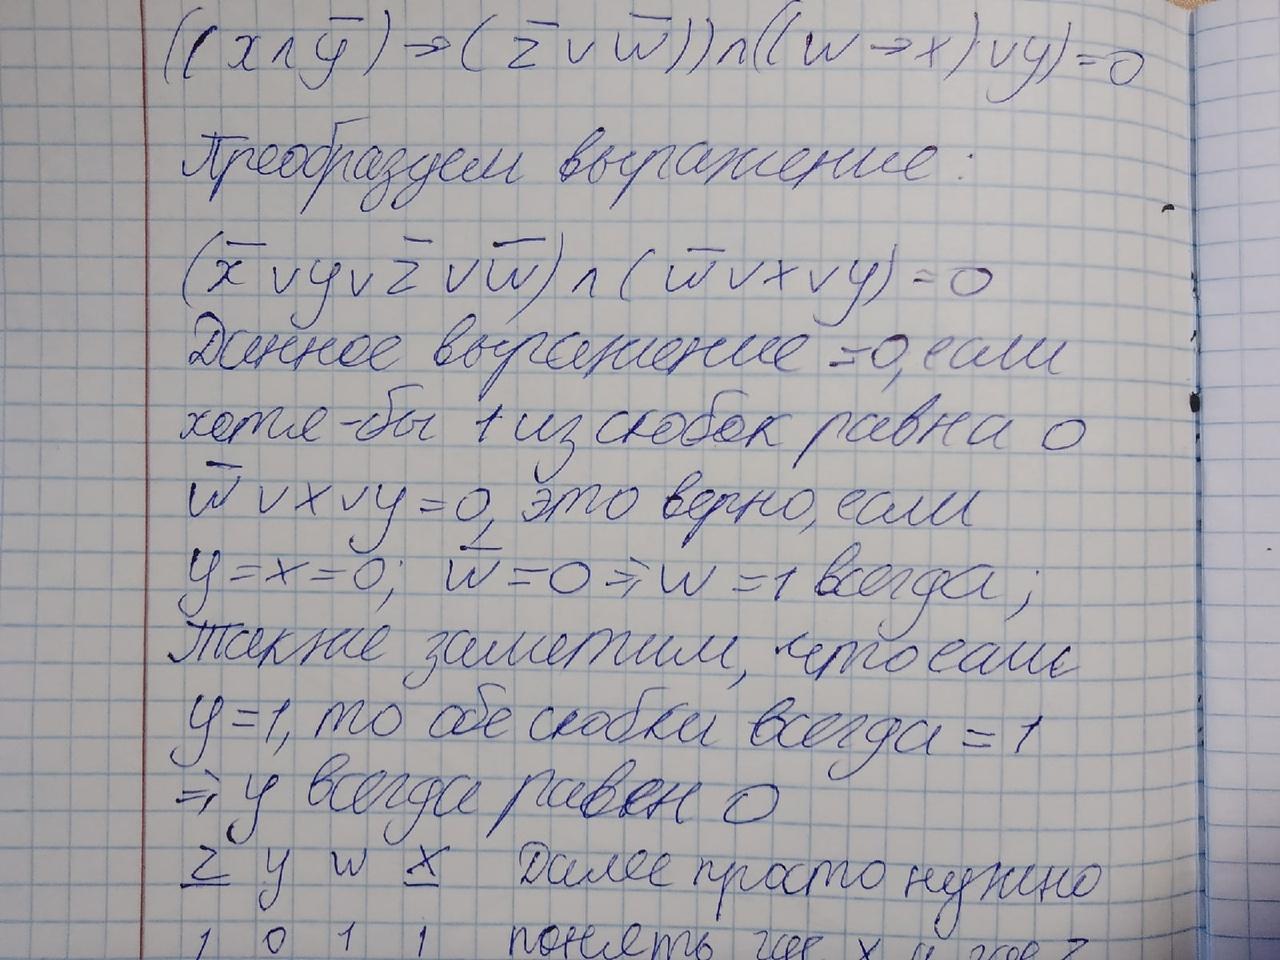 ((x∧y̅)→(z̅∨w̅))∧((w→x)∨y)=0
Преобразуем выражение:
(x̅∨y∨z̅∨w̅)∧(w̅∨x∨y)=0
Данное выражение =0, если
хотя-бы 1 из скобок равна 0
w̅∨x∨y=0, это верно, если
y=x=0; w̅=0⇒w=1 всегда;
Также заметим, что если
y=1, то обе скобки всегда =1
⇒y всегда равен 0
z y w x Далее просто нужно
1 0 1 1 понять где x и где z